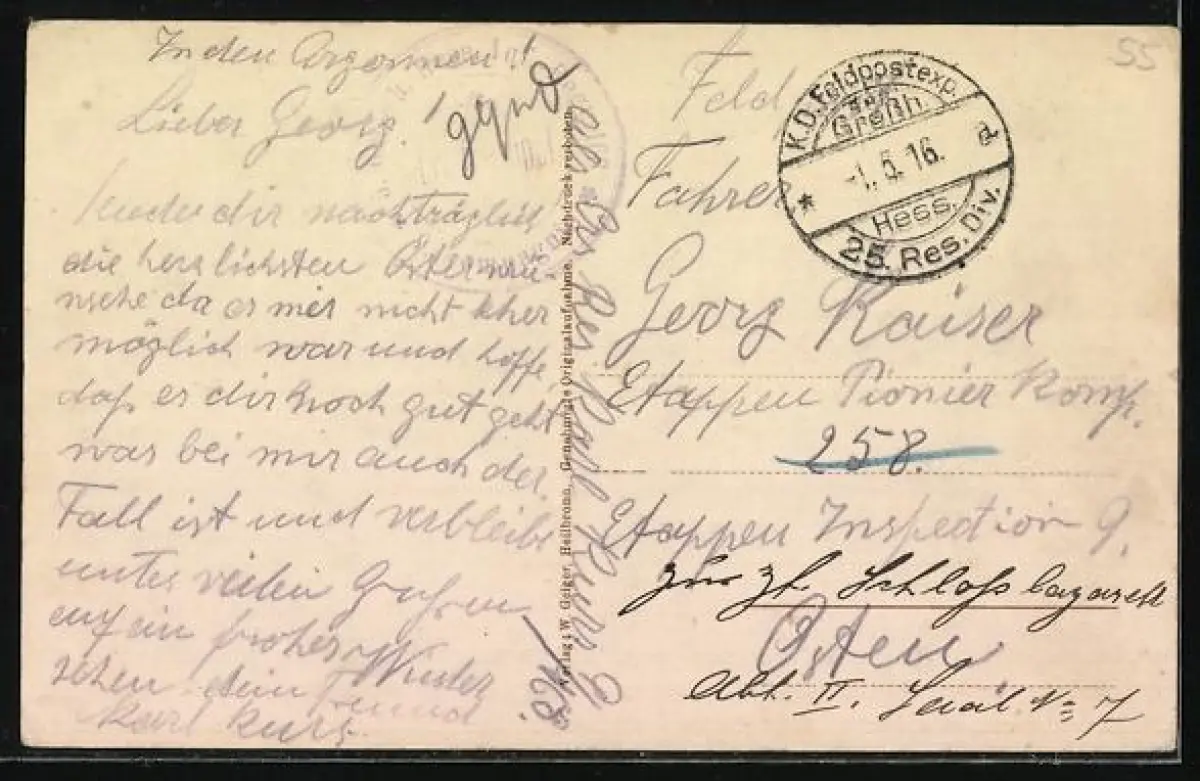 In den Argonnen!
Lieber Georg!
Sende dir nachträglich
die herzlichsten Osterwü-
nsche da es mir nicht eher
möglich war und hoffe
daß es dir noch gut geht
was bei mir auch der
Fall ist und verbleibe
unter vielen Grüßen
auf ein frohes Wieder
sehen dein Freund
Karl Kurs
Verlag: W. Geiger, Heilbronn. Genehmigte Originalaufnahme. Nachdruck verboten.
55
K.D. Feldpostexp.
der
Großh.
-1.5.16.
d
Hess.
25. Res. Div.
Feld
Fahrer
Georg Kaiser
Etappen Pionier Komp.
258.
Etappen Inspection 9.
zur Zt. Schloßlazarett
Osten
Abt. II. Saal No 7